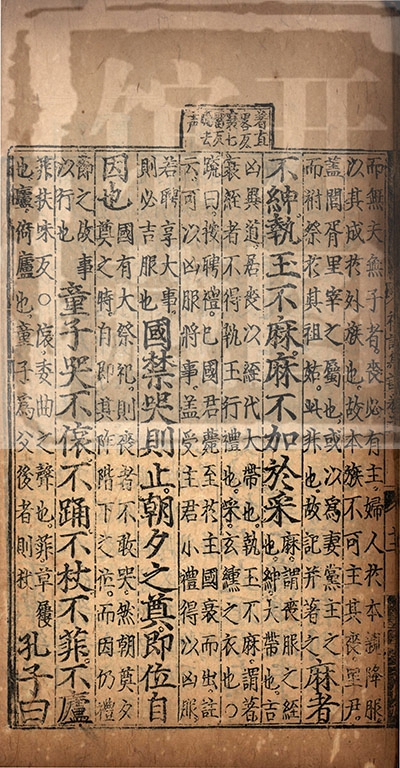 著直
畧反
衰七
雷反
去
声
而無夫無子者喪必有主婦人於本親降服
以其成於外族也故本族不可主其喪里尹
蓋閭胥里宰之屬也或以爲妻黨主之
而祔祭於其祖姑此非也故記并著之
麻者
不紳執玉不麻麻不加於采
麻謂喪服之絰
也紳大帶也吉
凶異道居喪以絰代大帶也執玉不麻謂著
衰絰者不得執玉行禮也采玄纁之衣也〇
疏曰按聘禮已國君薨至於主國衰而出註
云可以凶服將事蓋受主君小禮得以凶服
若聘享大事
則必吉服也
國禁哭則止朝夕之奠即位自
因也
國有大祭祀則喪者不敢哭然朝奠夕
奠之時自即其阼階下之位而因仍禮
節之故事
以行也
童子哭不偯不踊不杖不菲不廬
菲扶味反〇偯委曲之聲也菲草屨
也廬倚廬也童子爲父後者則杖
孔子曰